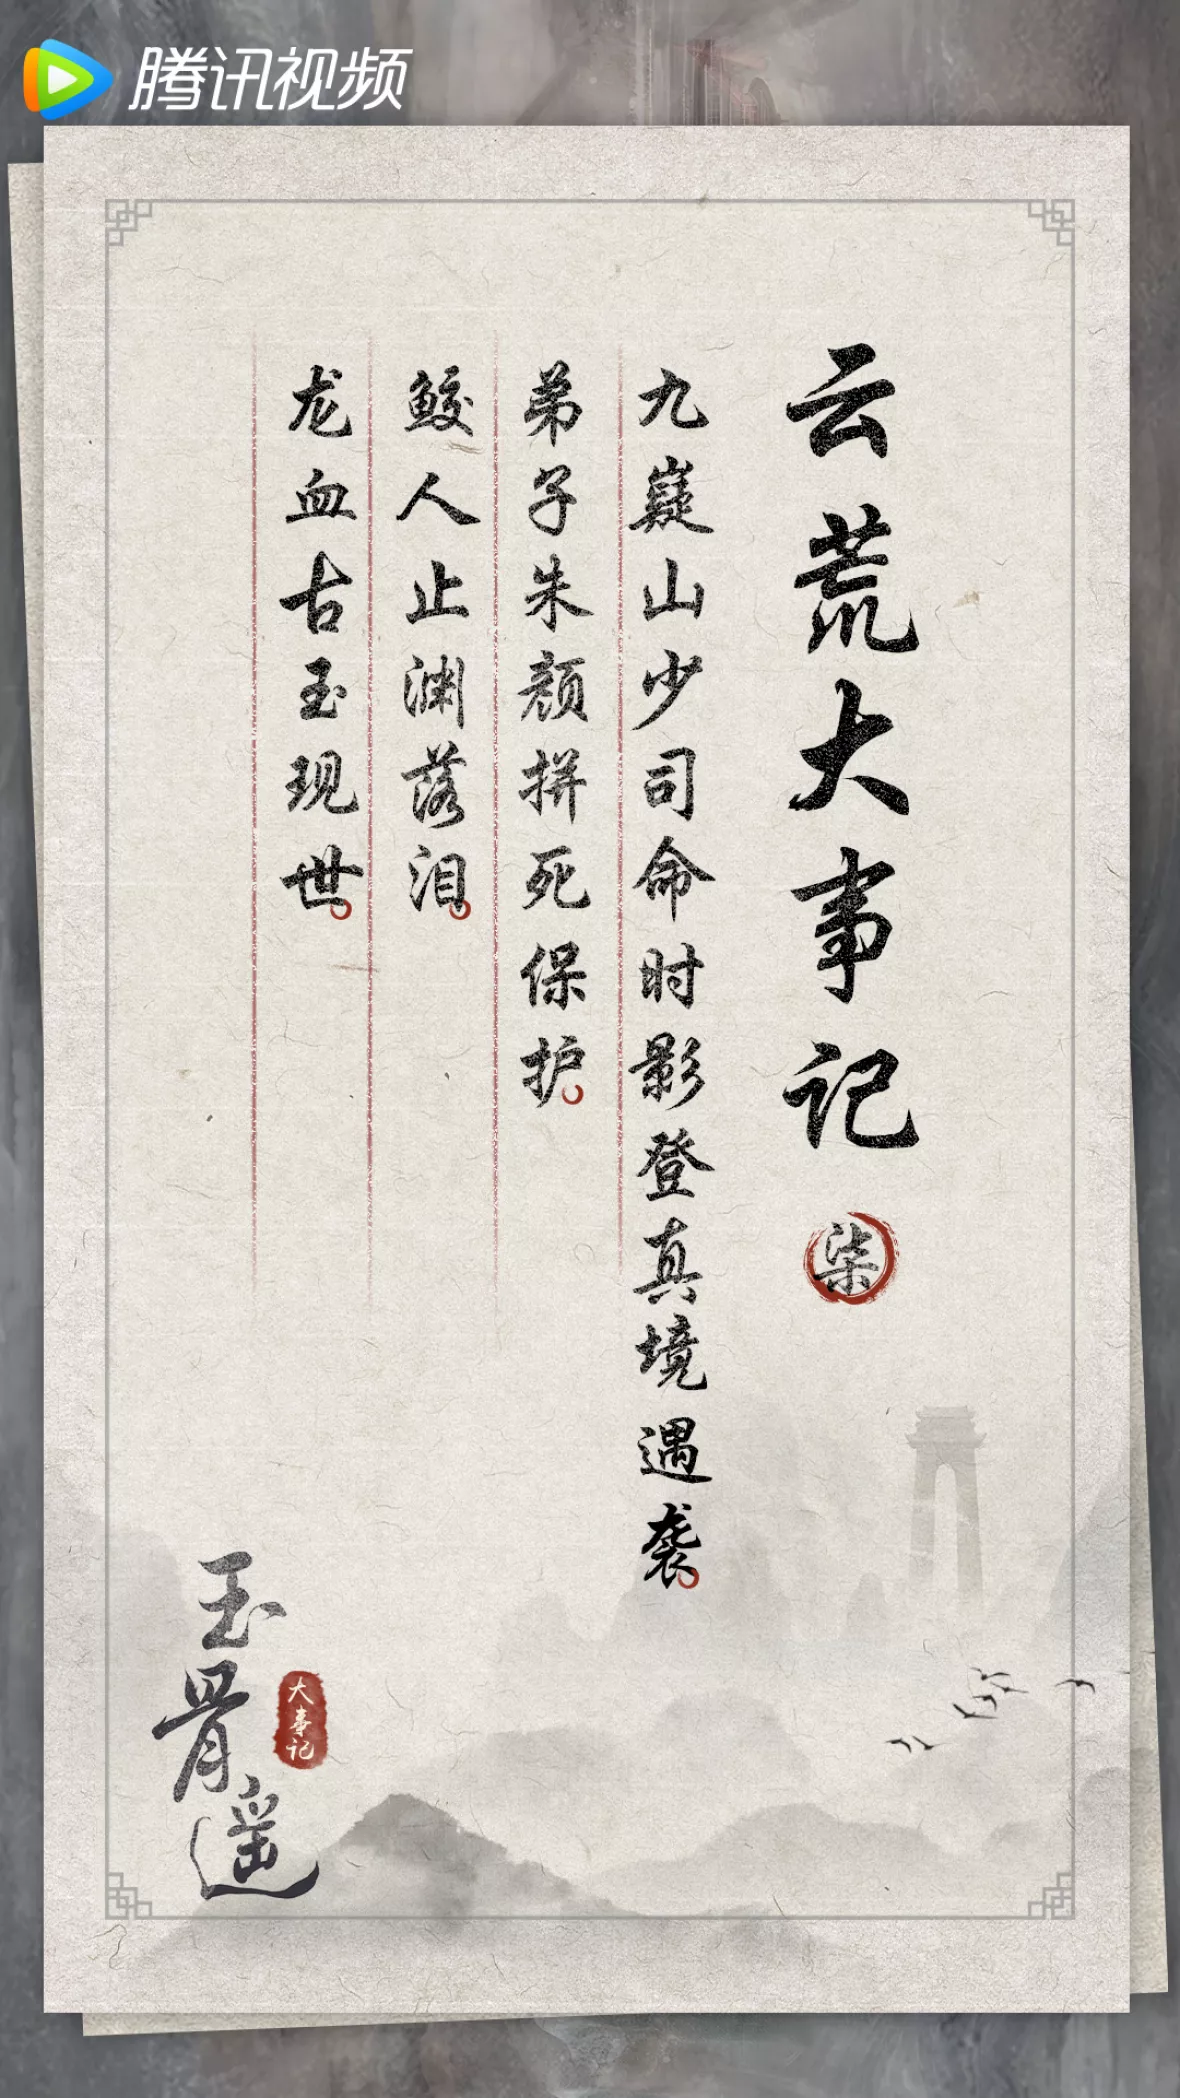 腾讯视频
云荒大事记
柒
九嶷山少司命时影登真境遇袭。
弟子朱颜拼死保护。
鲛人止渊落泪。
龙血古玉现世。
玉骨遥
大事记